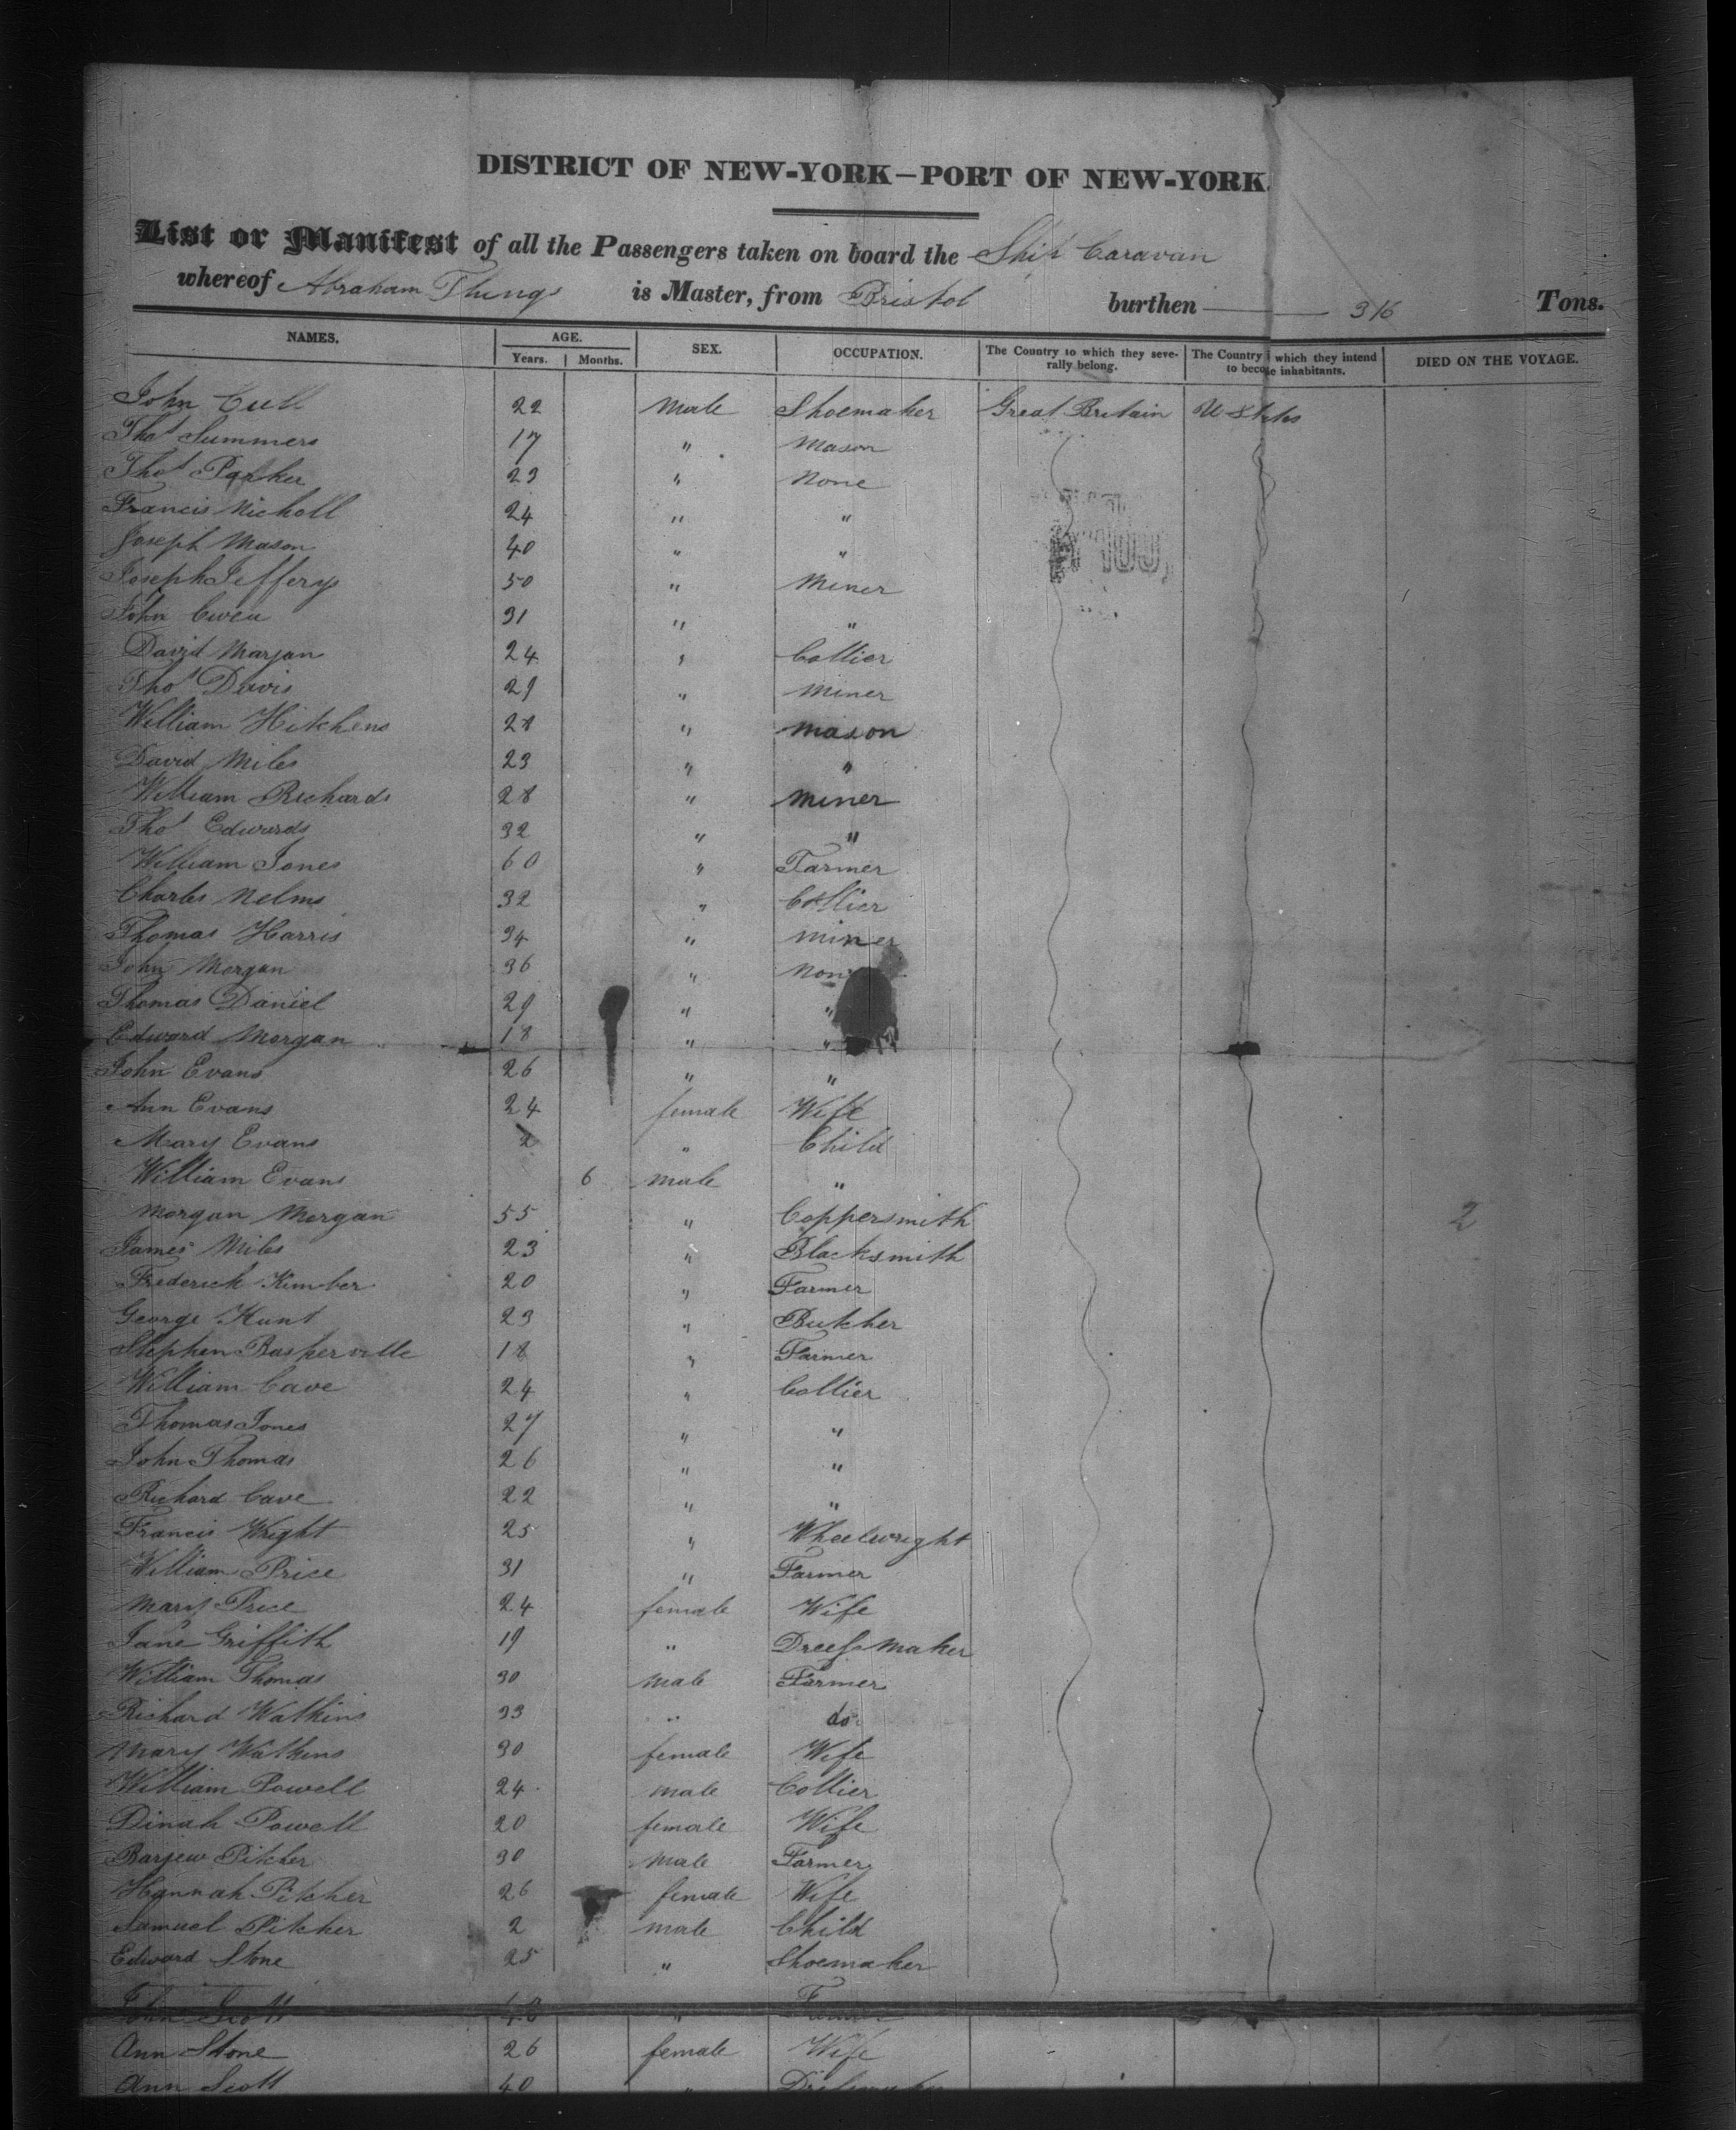 DISTRICT OF NEW-YORK—PORT OF NEW-YORK.
List or Manifest of all the Passengers taken on board the Ship Caravan
whereof Abraham Things is Master, from Bristol burthen 316 Tons.
NAMES. AGE. SEX. OCCUPATION. The Country to which they severally belong. The Country which they intend to become inhabitants. DIED ON THE VOYAGE.
Years. Months.
John Cull 22 Male Shoemaker Great Britain U States
Thos Summers 17 " Mason
Thos Parker 23 " None
Francis Nicholl 24 " "
Joseph Mason 40 " "
Joseph Jefferys 50 " Miner
John Owen 31 " "
David Morgan 24 " Collier
Thos Davis 29 " Miner
William Hitchens 28 " Mason
David Miles 23 " "
William Richards 28 " Miner
Thos Edwards 32 " "
William Jones 60 " Farmer
Charles Nelms 32 " Collier
Thomas Harris 34 " Miner
John Morgan 36 " None
Thomas Daniel 29 " "
Edward Morgan 18 " "
John Evans 26 " "
Ann Evans 24 female Wife
Mary Evans 2 " Child
William Evans 6 male "
Morgan Morgan 55 " Coppersmith 2
James Miles 23 " Blacksmith
Frederick Kimber 20 " Farmer
George Hunt 23 " Butcher
Stephen Baskerville 18 " Farmer
William Cave 24 " Collier
Thomas Jones 27 " "
John Thomas 26 " "
Richard Cave 22 " "
Francis Wright 25 " Wheelwright
William Price 31 " Farmer
Mary Price 24 female Wife
Jane Griffith 19 " Dress Maker
William Thomas 30 male Farmer
Richard Watkins 33 " do
Mary Watkins 30 female Wife
William Powell 24 male Collier
Dinah Powell 20 female Wife
Pitcher 30 male Farmer
Hannah Pitcher 26 female Wife
Samuel Pitcher 2 male Child
Edward Stone 25 " Shoemaker
John Scott 40 " Farmer
Ann Stone 26 female Wife
Ann Scott 40 "